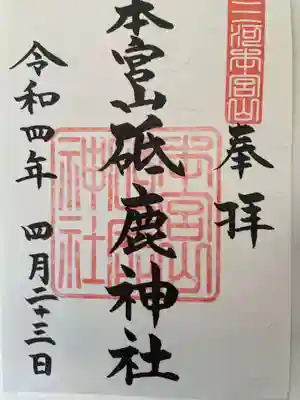 三河本宮山
奉拝
本宮山砥鹿神社
本宮山
神社
令和四年 四月二十三日